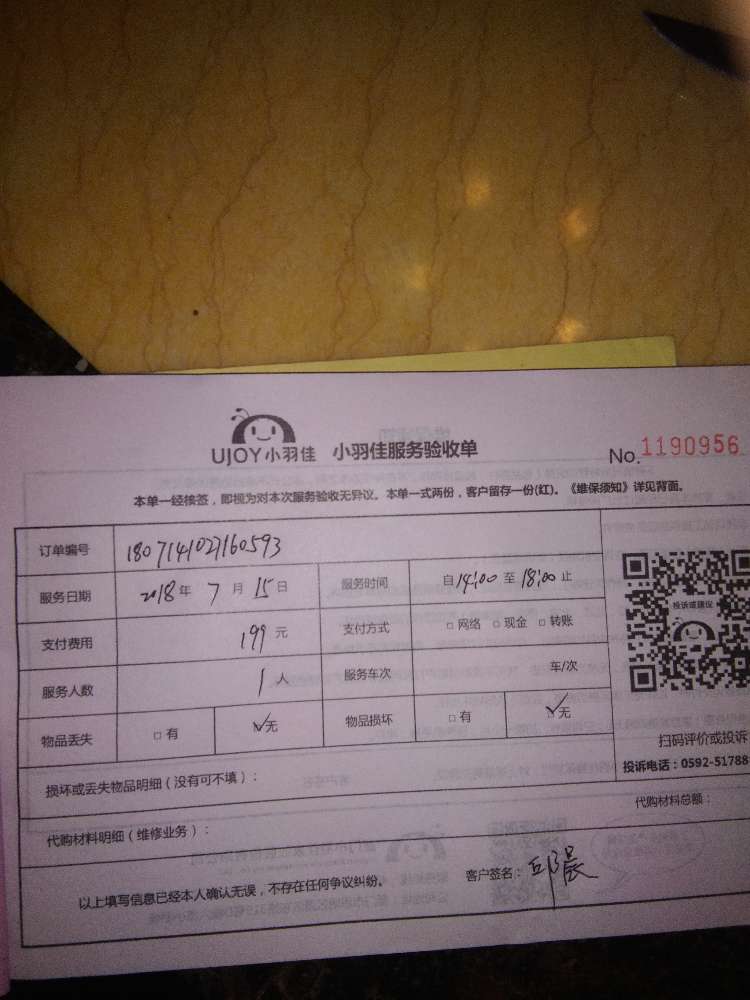 UJOY小羽佳 小羽佳服务验收单 No.1190956
本单一经接签，即视为对本次服务验收无异议。本单一式两份，客户留存一份(红)。《维保须知》详见背面。
订单编号 180714102160593
服务日期 2018年 7月 15日 服务时间 自14:00至18:00止
投诉或建议
支付费用 199元 支付方式 □网络 □现金 □转账
服务人数 1人 服务车次 车/次
物品丢失 □有 ☑无 物品损坏 □有 ☑无
扫码评价或投诉
投诉电话：0592-51788
损坏或丢失物品明细（没有可不填）：
代购材料明细（维修业务）： 代购材料总额：
以上填写信息已经本人确认无误，不存在任何争议纠纷。 客户签名：邱晨